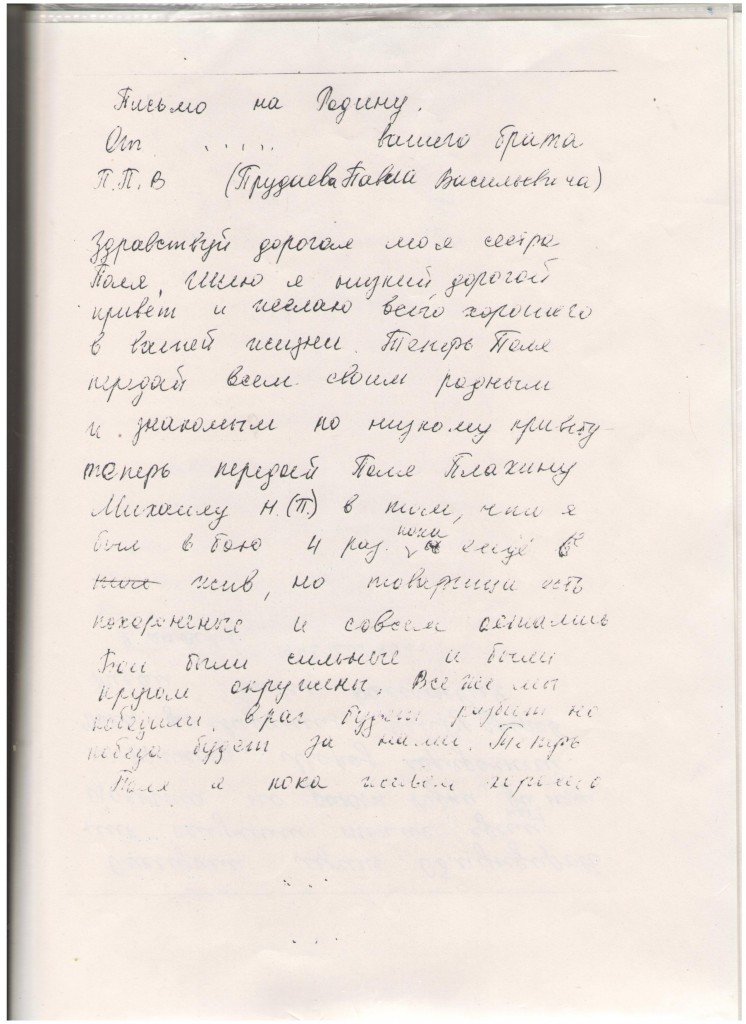 Письмо на Родину.
От ..... вашего брата
П.П.В (Прудаева Павла Васильевича)
Здравствуй дорогая моя сестра
Поля, Шлю я низкий, дорогой
привет и желаю всего хорошего
в вашей жизни. Теперь Поля
передай всем своим родным
и знакомым по низкому привету
теперь передай Поля Плахину
Михаилу Н.(П.) в том, что я
был в бою 4 раз. пока ещё
жив, но товарищи есть
похоронены и совсем остались
Бои были сильные и были
кругом окружены. Все же мы
победили. враг будет разбит но
победа будет за нами. Теперь
Поля я пока живём хорошо